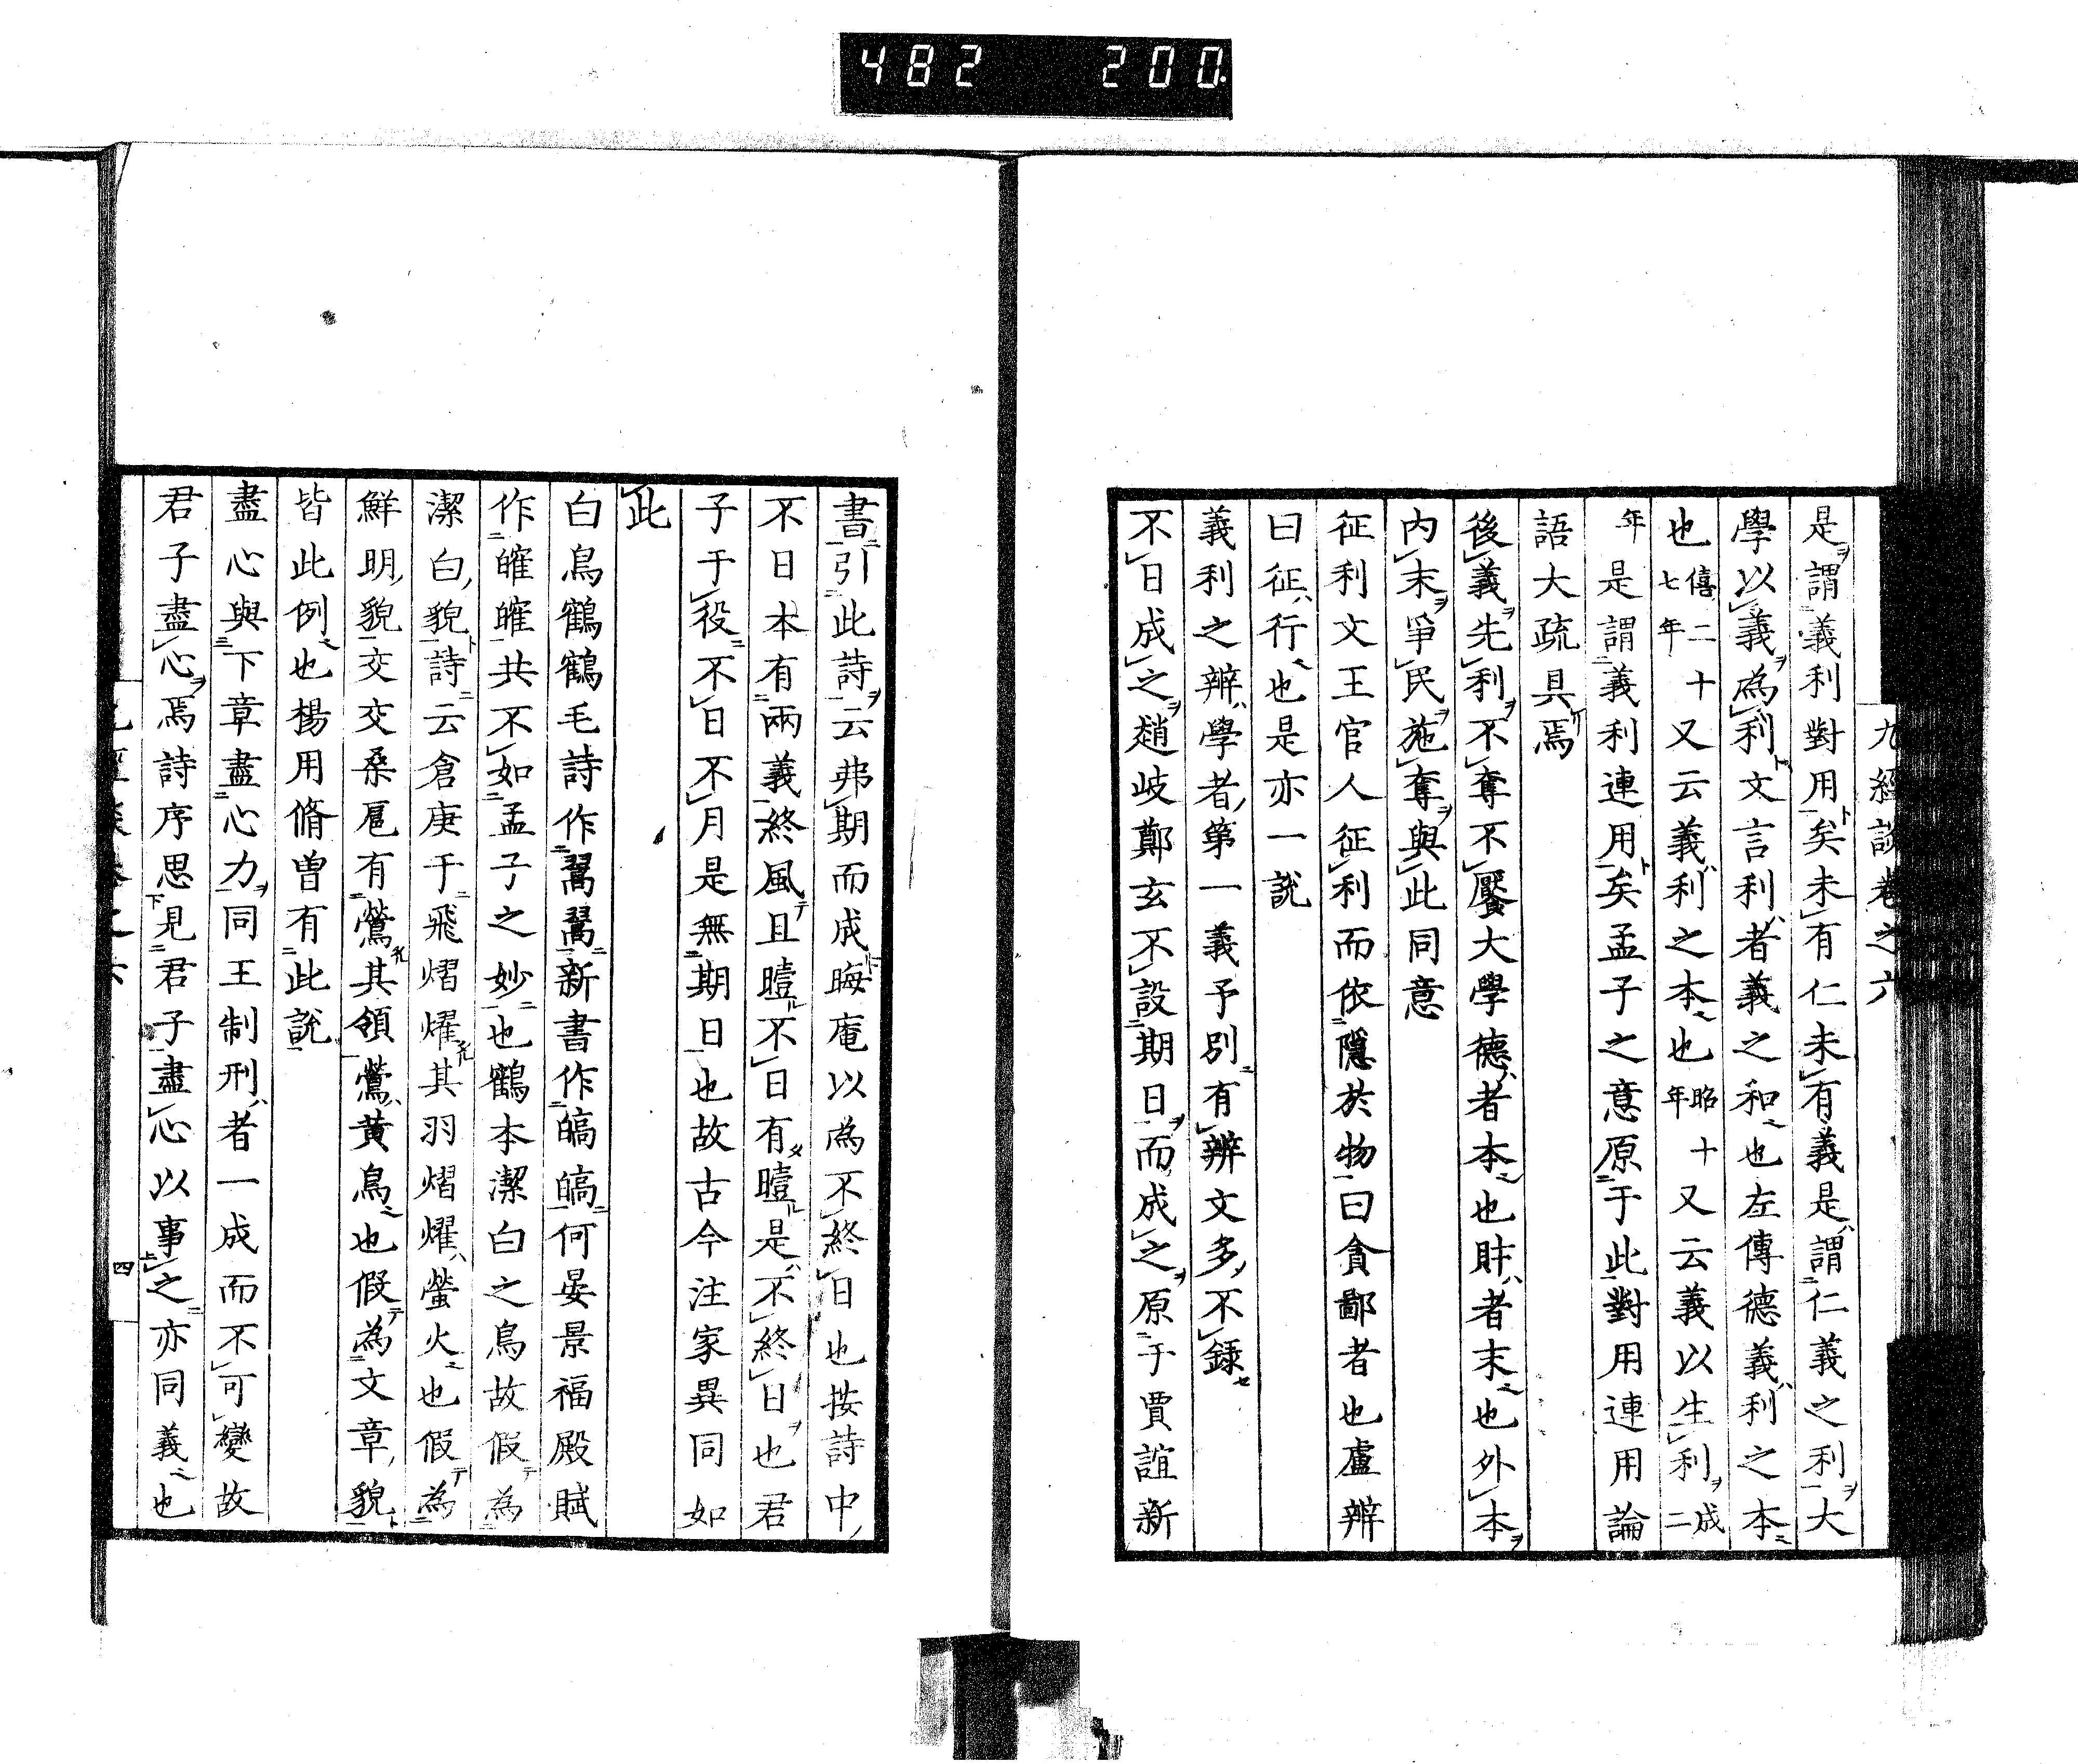 482 200
九經談卷之六
是謂義利對用矣未有仁未有義是謂仁義之利大
學以義為利文言利者義之和也左傳德義利之本
也僖二十七年又云義利之本也昭十年又云義以生利成二
年是謂義利連用矣孟子之意原于此對用連用論
語大疏具焉
後義先利不奪不饜大學德者本也財者末也外本
内末爭民施奪與此同意
征利文王官人征利而依隱於物曰貪鄙者也盧辨
曰征行也是亦一說
義利之辨學者第一義予別有辨文多不錄
不日成之趙岐鄭玄不設期日而成之原于賈誼新
書引此詩云弗期而成晦庵以為不終日也按詩中
不日本有兩義終風且曀不日有曀是不終日也君
子于役不日不月是無期日也故古今注家異同如
此
白鳥鶴鶴毛詩作翯翯新書作皜皜何晏景福殿賦
作㿥㿥共不如孟子之妙也鶴本潔白之鳥故假為
潔白貌詩云倉庚于飛熠燿其羽熠燿螢火也假為
鮮明貌交交桑扈有鶯其領鶯黃鳥也假為文章貌
皆此例也楊用脩曾有此說
盡心與下章盡心力同王制刑者一成而不可變故
君子盡心焉詩序思見君子盡心以事之亦同義也
四